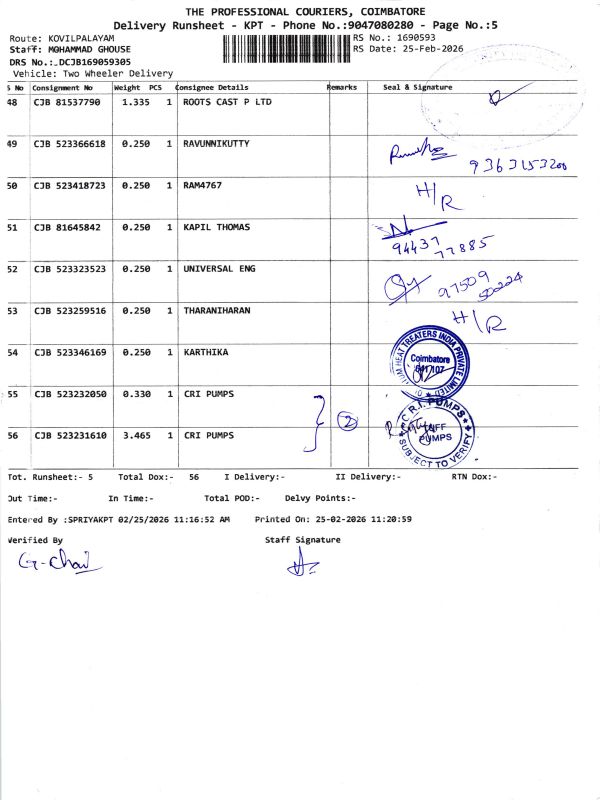 THE PROFESSIONAL COURIERS, COIMBATORE
Delivery Runsheet - KPT - Phone No.:9047080280 - Page No.:5
Route: KOVILPALAYAM RS No.: 1690593
Staff: MOHAMMAD GHOUSE RS Date: 25-Feb-2026
DRS No.:_DCJB169059305
Vehicle: Two Wheeler Delivery
S No Consignment No Weight PCS Consignee Details Remarks Seal & Signature
48 CJB 81537790 1.335 1 ROOTS CAST P LTD
49 CJB 523366618 0.250 1 RAVUNNIKUTTY
9363153200
50 CJB 523418723 0.250 1 RAM4767 H/R
51 CJB 81645842 0.250 1 KAPIL THOMAS
94437
77885
52 CJB 523323523 0.250 1 UNIVERSAL ENG
97509
50224
53 CJB 523259516 0.250 1 THARANIHARAN H/R
54 CJB 523346169 0.250 1 KARTHIKA
HEAT TREATERS INDIA PRIVATE LIMITED
Coimbatore
641 107
55 CJB 523232050 0.330 1 CRI PUMPS
2
C.R.I. PUMPS
PUMPS
SUBJECT TO VERIFY
56 CJB 523231610 3.465 1 CRI PUMPS
Tot. Runsheet:- 5 Total Dox:- 56 I Delivery:- II Delivery:- RTN Dox:-
Out Time:- In Time:- Total POD:- Delvy Points:-
Entered By :SPRIYAKPT 02/25/2026 11:16:52 AM Printed On: 25-02-2026 11:20:59
Verified By Staff Signature